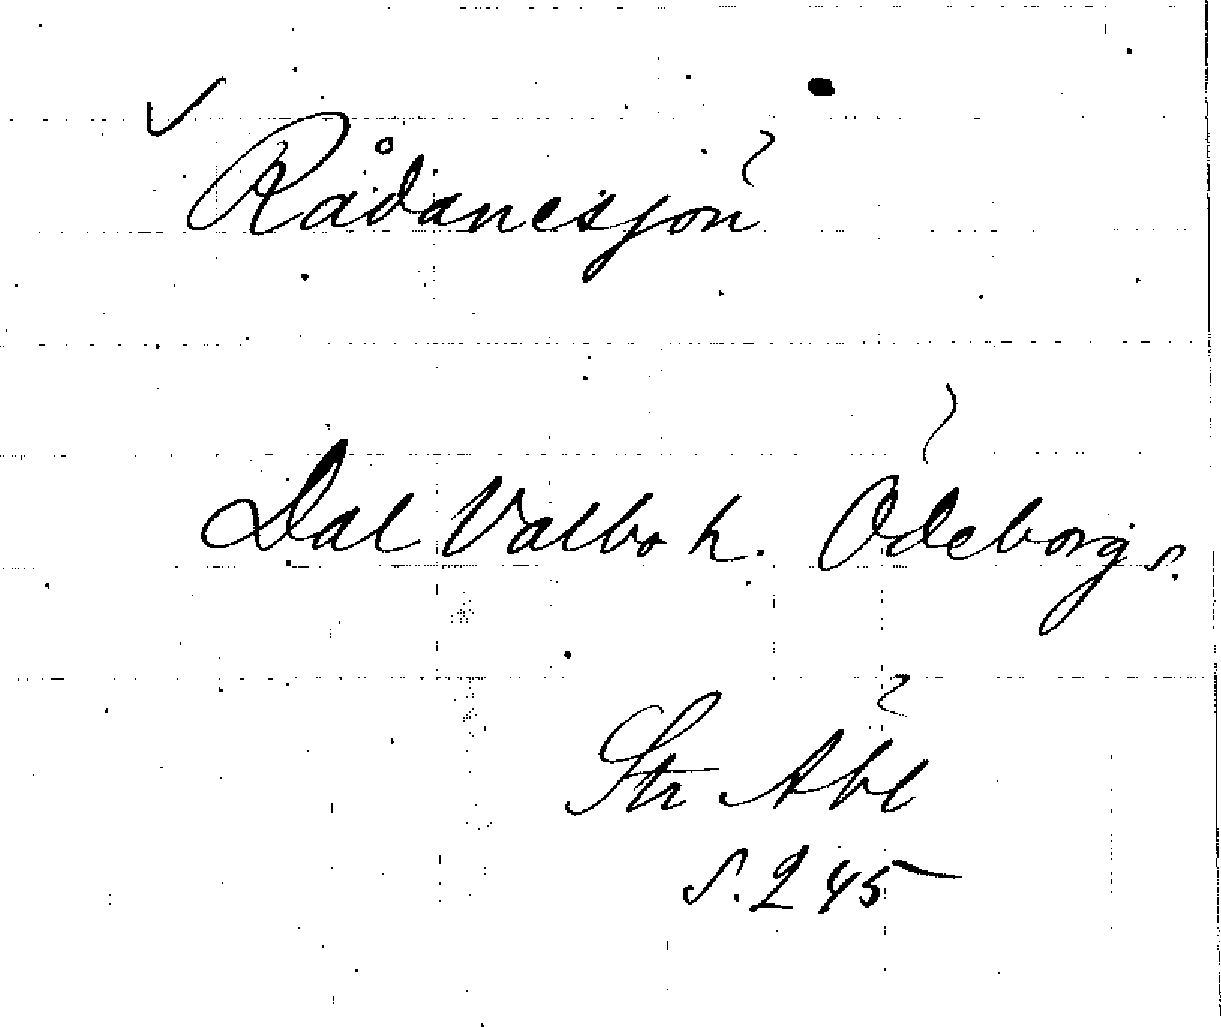 Rådanesjön
Dal Valbo h. Ödeborg s.
Str Åbl
s. 245